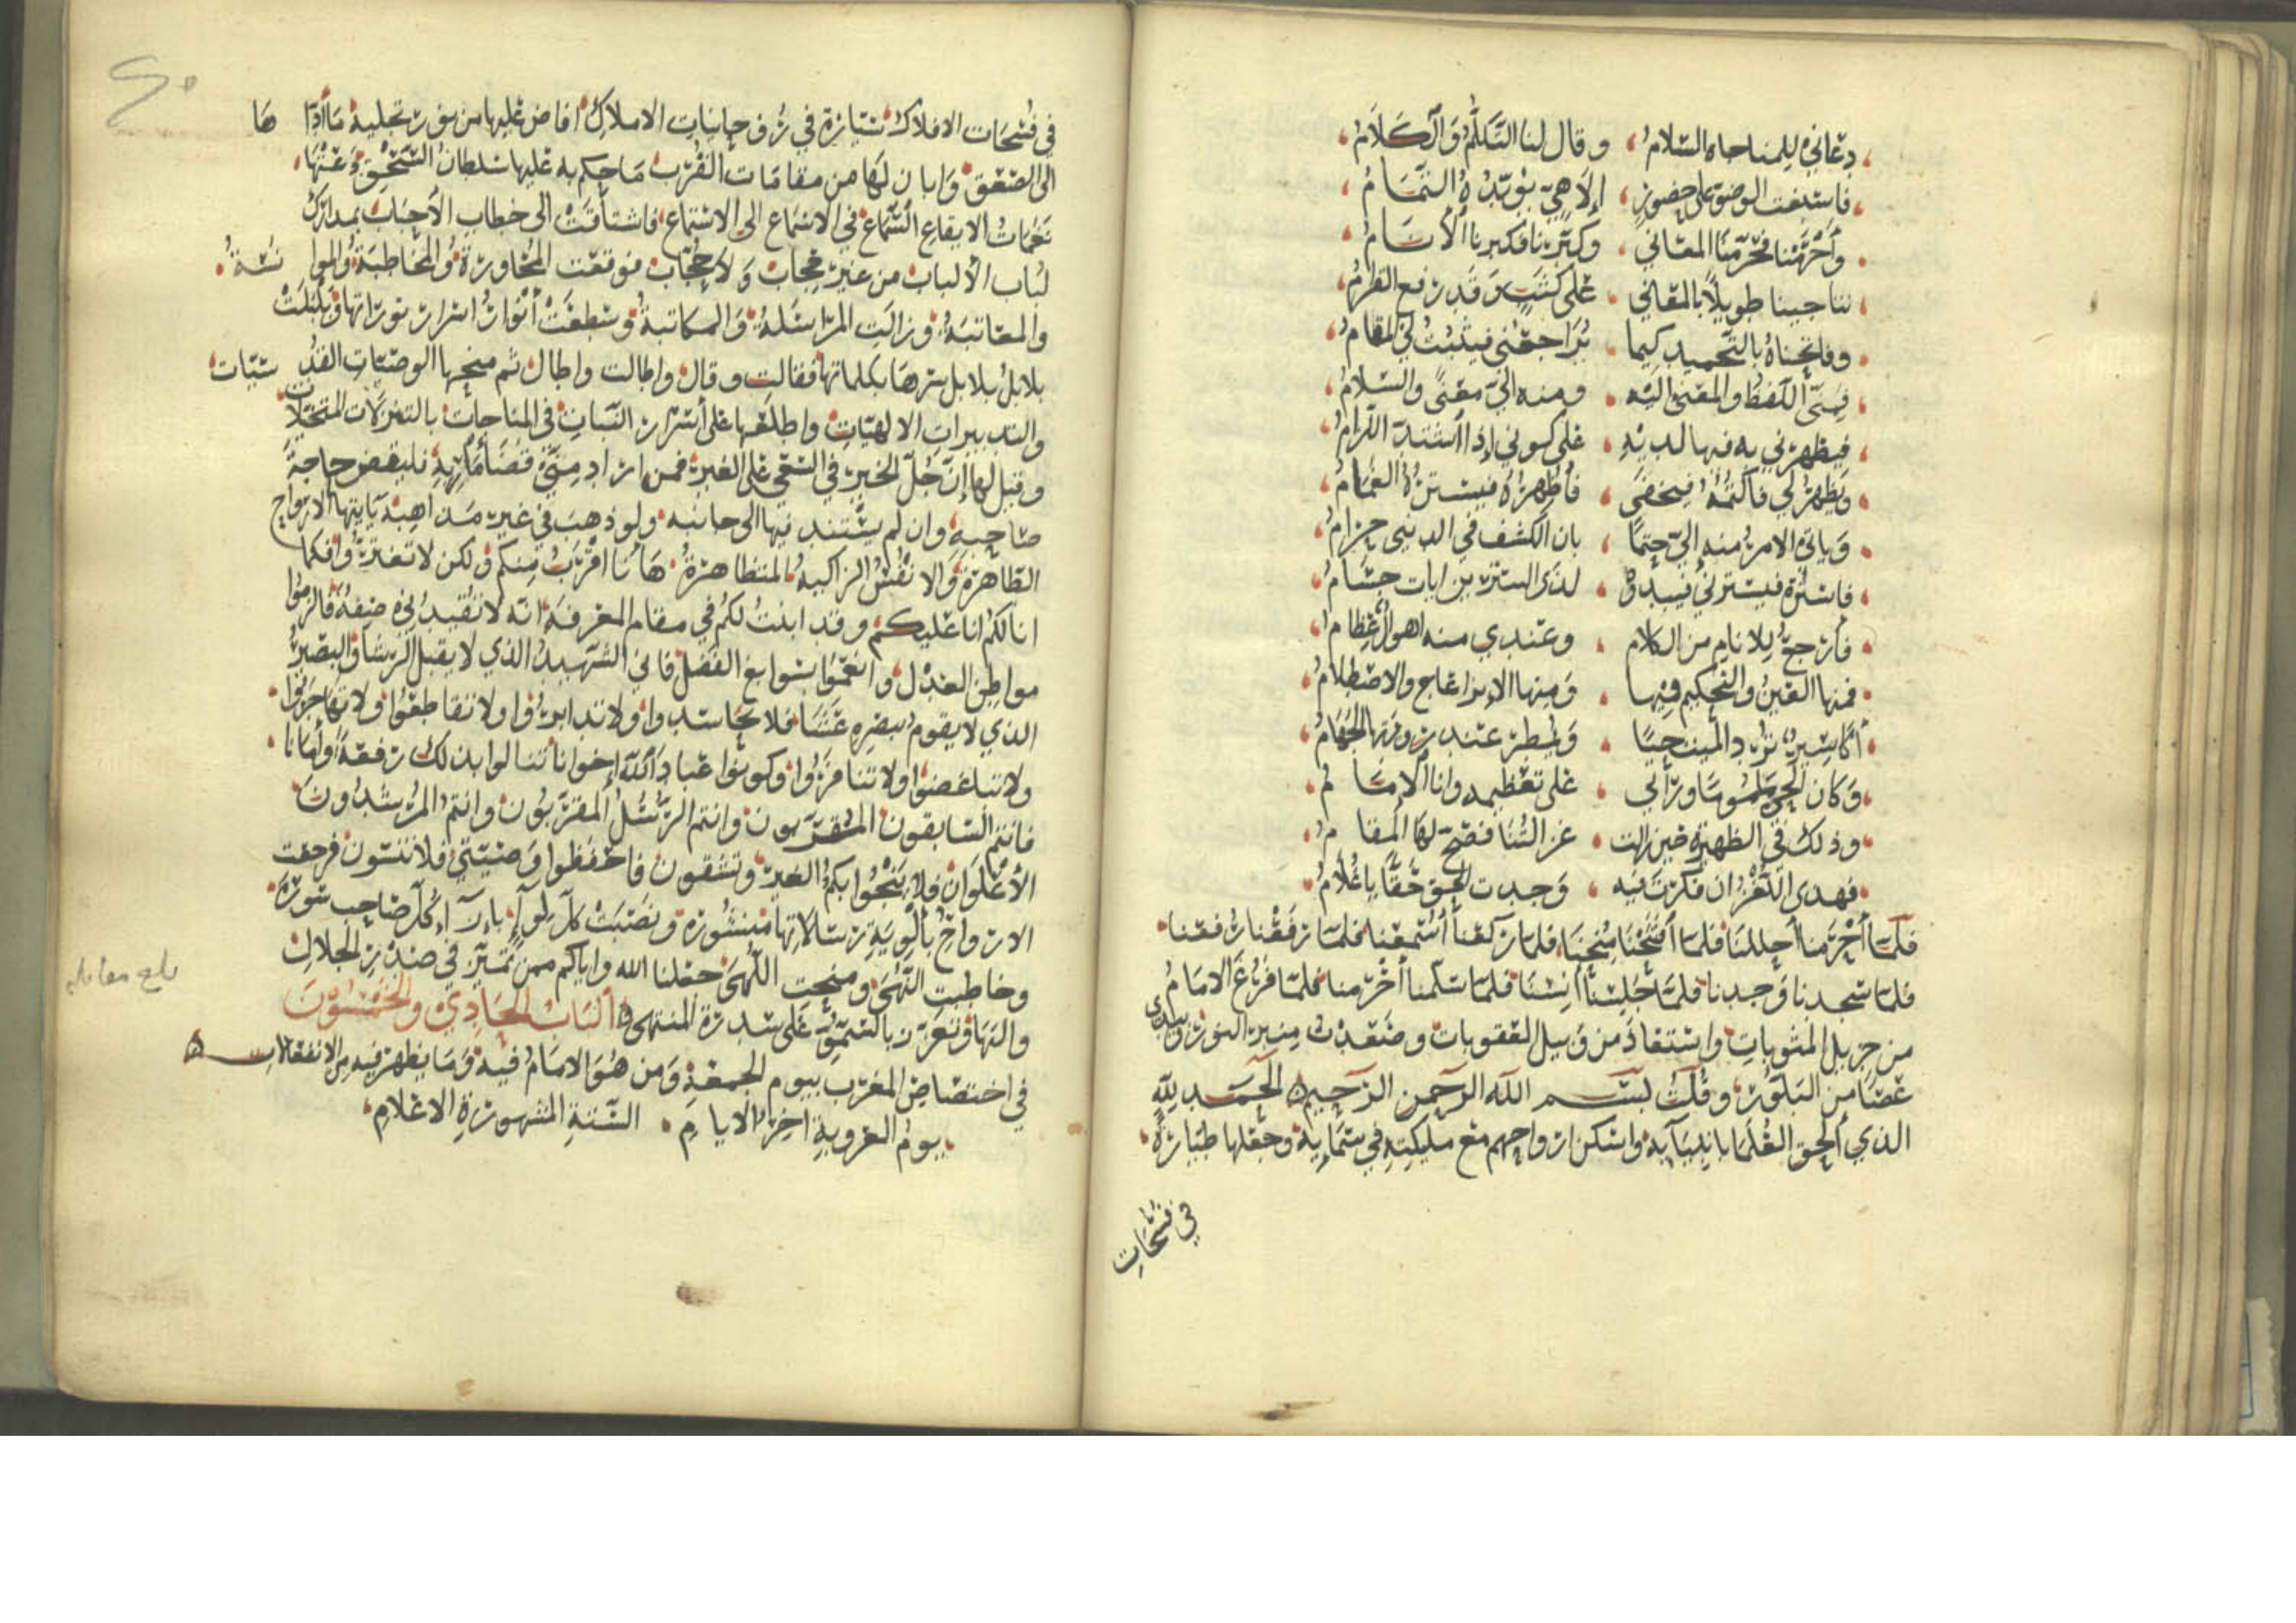 دعاني للمناجاه السلام وقال لنا التكلم والكلام
فاسبغت الوضو على حضور إلاهي يؤيده التمام
وأحرمنا محرمنا المعاني وكبرنا فكبرنا الأنام
نناجينا طويلا بالمعاني على كثب وقد رفع القرام
وفاتحناه بالتحميد كيما يراجعني فيثبت لي المقام
فمني اللفظ والمعنى اليه ومنه الي معنى والسلام
فيظهرني به فيها لديه على كوني إذا اشتد اللزام
ويظهر لي فأكتمه فيخفى فأظهره فيستره الغمام
وياتي الامر منه إلي حتما بان الكشف في الدنيى حرام
فاستره فيسترني فيبدو لذي الستر من ايات جسام
فأرجع للانام من الكلام وعندي منه اهوال عظام
فمنها العين والتحكيم فيها ومنها الا والاصطلام
أكاسير ترد الميت حيا ويمطر عند رويتها الجهام
وكان الحق ورآني على تعظيمه وانا الإمام
وذلك في الظهيرة حين زالت عن السنا فصح لها المقام
فهدى اللغز ان فكرت فيه وجدت الحق حقا يا غلام
فلما أحرمنا أحللنا فلما أفتتحنا منحنا فلما ركعنا أستمعنا فلما رفعنا رفعنا
فلما سجدنا وجدنا فلما جلسنا أنسنا فلما سلمنا أحرمنا فلما فرغ الامام
من جزيل المثوبات واستعاذ من وبيل العقوبات وصعدت منبر النور وبيدي
عصا من البلور وقلت بسم الله الرحمن الرحيم الحمد لله
الذي ألحق العلما بانبيآيه واسكن ارواحهم مع مليكته في سمايه وجعلها طيارة
في فسحات
في فسحات الافلاك سيارة في روحانيات الاملاك افاض عليها من نور تجليه ما أداها
الى الصعق وابان لها من مقامات القرب ما حكم به عليها سلطان السحق وغنتها
نغمات الايقاع السماع في الاسماع الى الاستماع فاشتاقت الى خطاب الأحباب بمدارك
لباب الألباب من غير حجاب ولا حجاب فوقعت المحاورة والمخاطبة والموانسة
والمعاتبة وزالت المراسلة والمكاتبة وسطعت أنوار اسرار توراتها وبلبلت
بلابل بلابل سرها بكلماتها فقالت وقال واطالت واطال ثم منحها الوصيات القدسيات
والتدبيرات الالهيات واطلعها على أسرار الثبات في المناجات بالتنزلات المتخيلات
وقيل لها إن جل الخير في السعي على الغير فمن اراد مني قضا مآربه فليقض حاجة
صاحبه وان لم يستند فيها الى جانبه ولو ذهب في غير مذاهبه يآيتها الارواح
الطاهرة والانفس الزاكية المتظاهرة هانا اقرب منكم ولكن لا تغتروا فكما
انا لكم انا عليكم وقد ابنت لكم في مقام المعرفة انه لا تقيدني صفة فالزموا
مواطن العدل وانعموا بسوابغ الفضل فاني الشهيد الذي لا يقبل الرشا والبصير
الذي لا يقوم ببصره عشا فلا تحاسدوا ولا تدابروا ولا تقاطعوا ولا تهاجروا
ولا تباغضوا ولا تنافروا وكونوا عباد الله إخوانا تنالوا بذلك رفعة وأمانا
فانتم السابقون المقربون وانتم الرسل المقربون وانتم المرشدون
الأعلون فلا ينجوا بكم الغير وتشقون فاحفظوا وصيتي فلا تنسون فرجعت
الارواح بألوية رسالاتها منشورة ونصبت كل لوآء بازآء كل صاحب سورة
وخاطبت النهى ومنحت اللهى جعلنا الله واياكم ممن تميز في صدر الجلال
والبها وتعزز بالسمو على سدرة المنتهى الباب الحادي والخمسون
في اختصاص المغرب بيوم الجمعة ومن هو الامام فيه وما يظهر فيه من الانفعالات
يوم العروبة اخر الايام السنة المشهورة الاعلام
بلغ مقابلة